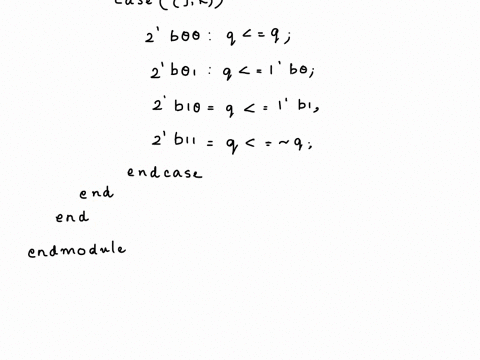 case({J,K})
2'b00: q <= q;
2'b01: q <= 1'b0;
2'b10= q <= 1'b1,
2'b11= q <= ~q;
endcase
end
end
endmodule